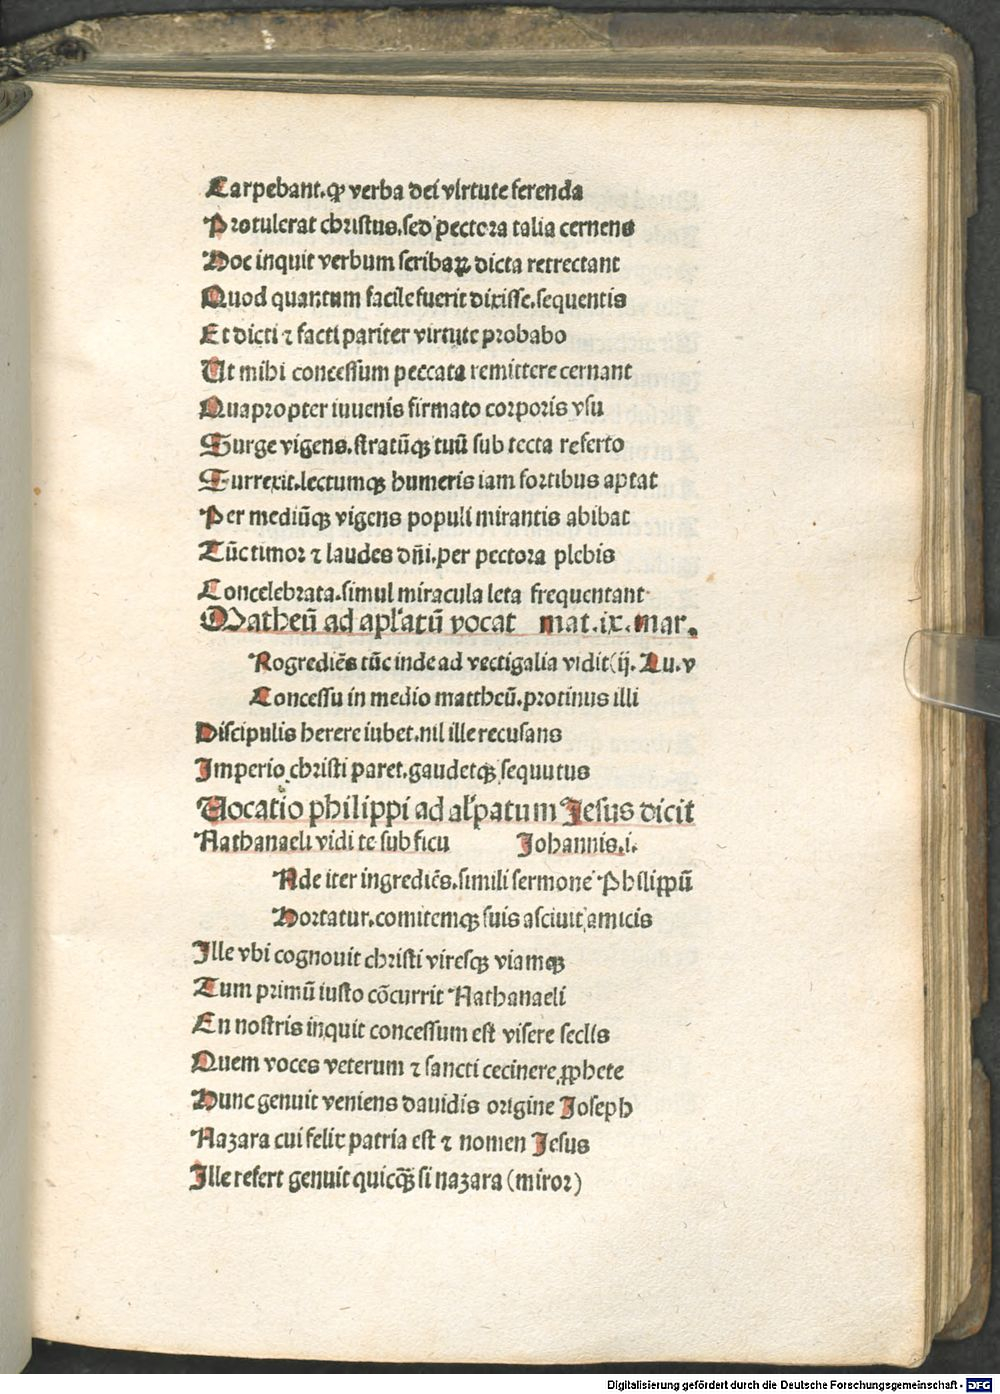 Carpebant.ꝙ verba dei virtute ferenda
Protulerat christus.sed pectora talia cernens
Hoc inquit verbum scribaꝝ dicta retrectant
Quod quantum facile fuerit dixisse.sequentis
Et dicti ⁊ facti pariter virtute probabo
Ut mihi concessum peccata remittere cernant
Quapropter iuuenis firmato corporis vsu
Surge vigens.stratūqꝫ tuū sub tecta referto
Surrexit.lectumqꝫ humeris iam fortibus aptat
Per mediūqꝫ vigens populi mirantis abibat
Tūc timor ⁊ laudes dn̄i.per pectora plebis
Concelebrata.simul miracula leta frequentant
Matheū ad apl'atū vocat mat.ix.mar.
Rogrediēs tūc inde ad vectigalia vidit(ij. Lu.v
Concessu in medio mattheū.protinus illi
Discipulis herere iubet.nil ille recusans
Imperio christi paret.gaudetqꝫ sequutus
Vocatio philippi ad al'patum Jesus dicit
Nathanaeli vidi te sub ficu Johannis.i.
Nde iter ingrediēs.simili sermone Philippū
Hortatur.comitemqꝫ suis asciuit amicis
Ille vbi cognouit christi viresqꝫ viamqꝫ
Tum primū iusto cōcurrit Nathanaeli
En nostris inquit concessum est visere seclis
Quem voces veterum ⁊ sancti cecinere ꝓphete
Hunc genuit veniens dauidis origine Joseph
Nazara cui felix patria est ⁊ nomen Jesus
Ille refert genuit quicqꝫ̄ si nazara (miror)
Digitalisierung gefördert durch die Deutsche Forschungsgemeinschaft - DFG